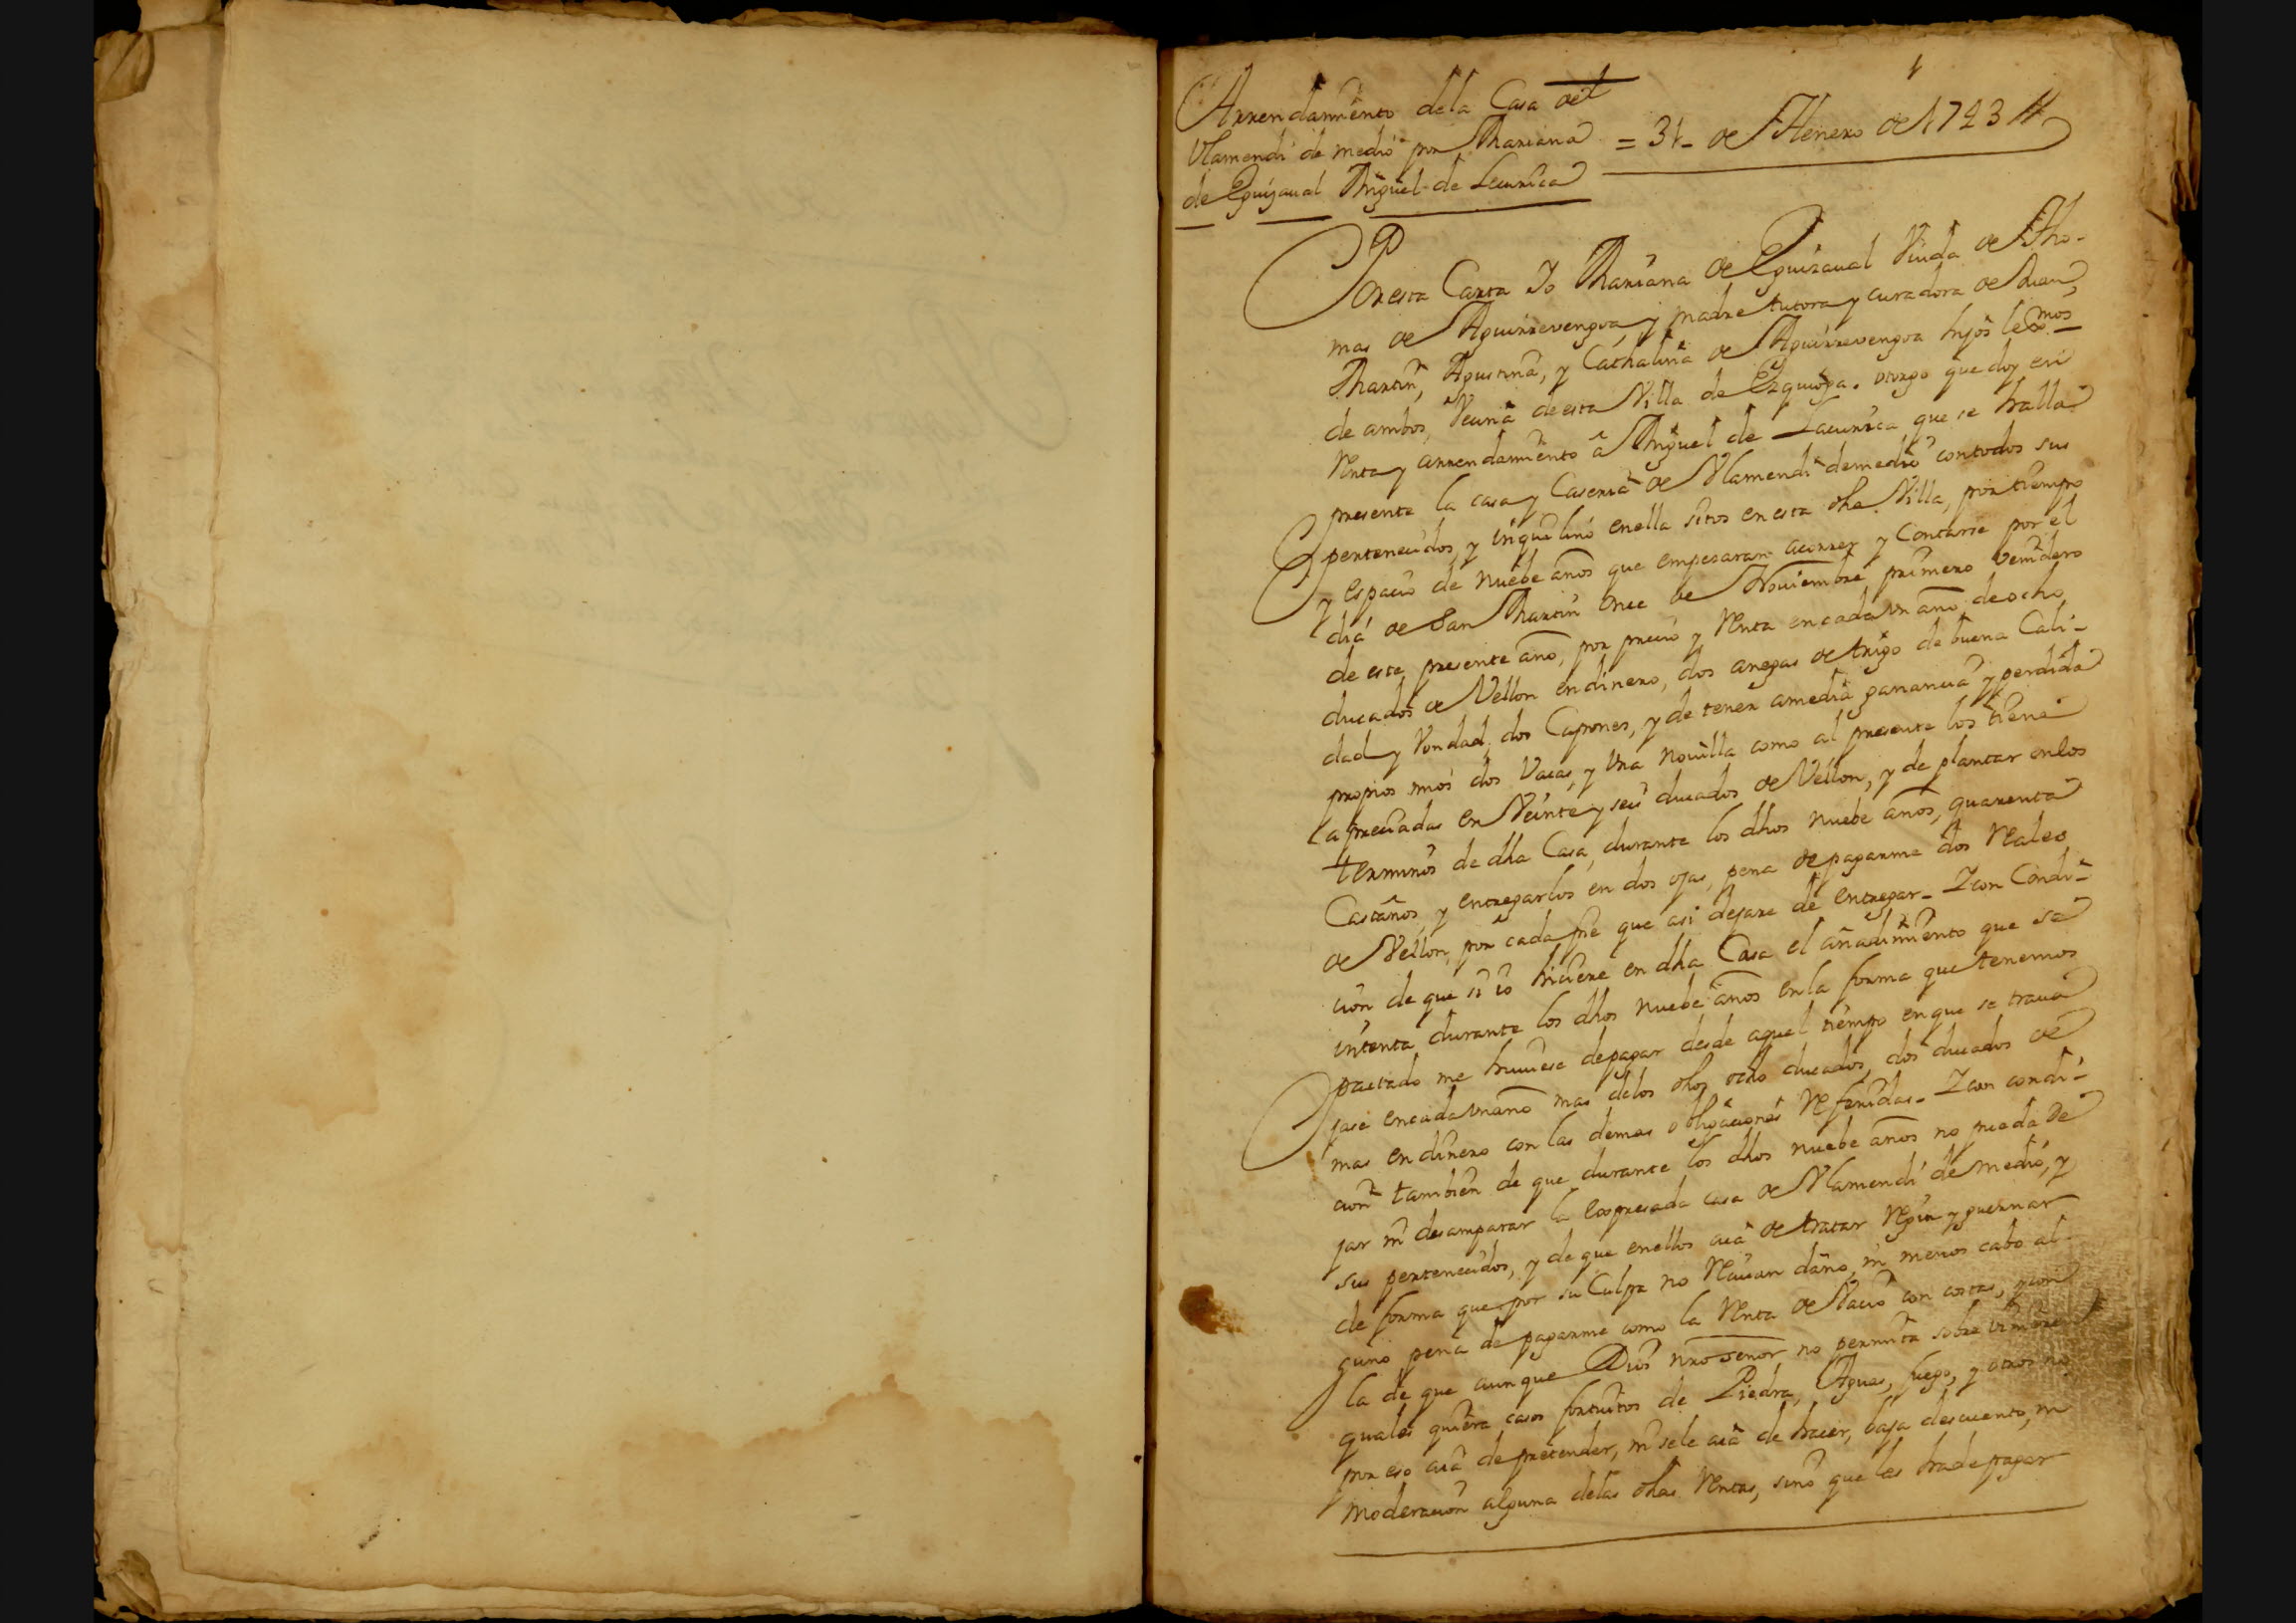 1
Arrendamiento dela Casa de
Vlamendi de medio por Mariana = 31- de Henero de 1723 //
de Eguizaual Miguel de Lecunza
Por esta Carta Yo Mariana de Eguizaual Viuda de Tho-
mas de Aguirrevengoa, y madre tutora y curadora de Juan,
Martin, Agustina, y Cathalina de Aguirrevengoa hijos lexmos
de ambos, Vecina de esta Villa de Ezquioga. otorgo que doy en
Renta y arrendamiento â Miguel de que se halla
presente la casa y Caseria de Vlamendi demedio contodos sus
pertenecidos, y inquilino enella sitos en esta dha Villa, por tiempo
y espacio de nuebe años que empesaran acorrer y Contarse por el
dia de San Martin Once de Noviembre primero benidero
de este presente año, por precio y Renta encada vn año de ocho
ducados de Vellon endinero, dos anegas de trigo de buena Cali-
dad y Vondad, dos Capones, y de tener amedia ganancia y perdida
propios mios dos Vacas, y Vna Novilla como al presente los tiene
apreciadas en Veinte y seis ducados de Vellon, y de plantar enlos
terminos de dha Casa, durante los dhos nuebe años, quarenta
Castaños, y entregarlos en dos ojas, pena de pagarme dos Reales
de Vellon, por cada pie que asi dejare de entregar- Y con Condi-
cion de que si io hiciere en dha Casa el añadimiento que se
intenta durante los dhos nuebe años en la forma que tenemos
pactado me huuiese depagar desde aquel tiempo en que se traua
jase encadavnaño mas delos dhos ocho ducados, dos ducados de
mas en dinero con las demas obligaciones Referidas- Y con condi-
cion tambien de que durante los dhos nuebe años no pueda De
jar ni desamparar la espresada casa de Vlamendi de medio, y
sus pertenecidos, y de que enellos aia de tratar Regir y guernar
de forma que por su Culpa no Reciuan daño, ni menos cabo al-
guno pena de pagarme como la Renta de Vacio con costas, y con
la de que aunque Dios nro señor no permita sobre viniere
quales quiera casos fortuitos de Piedra, Aguas, fuego, y otros no
por eso aia de pretender, ni sele aia de hacer, baja descuento, ni
moderacion alguna delas dhas Rentas, sino que las hadepagar